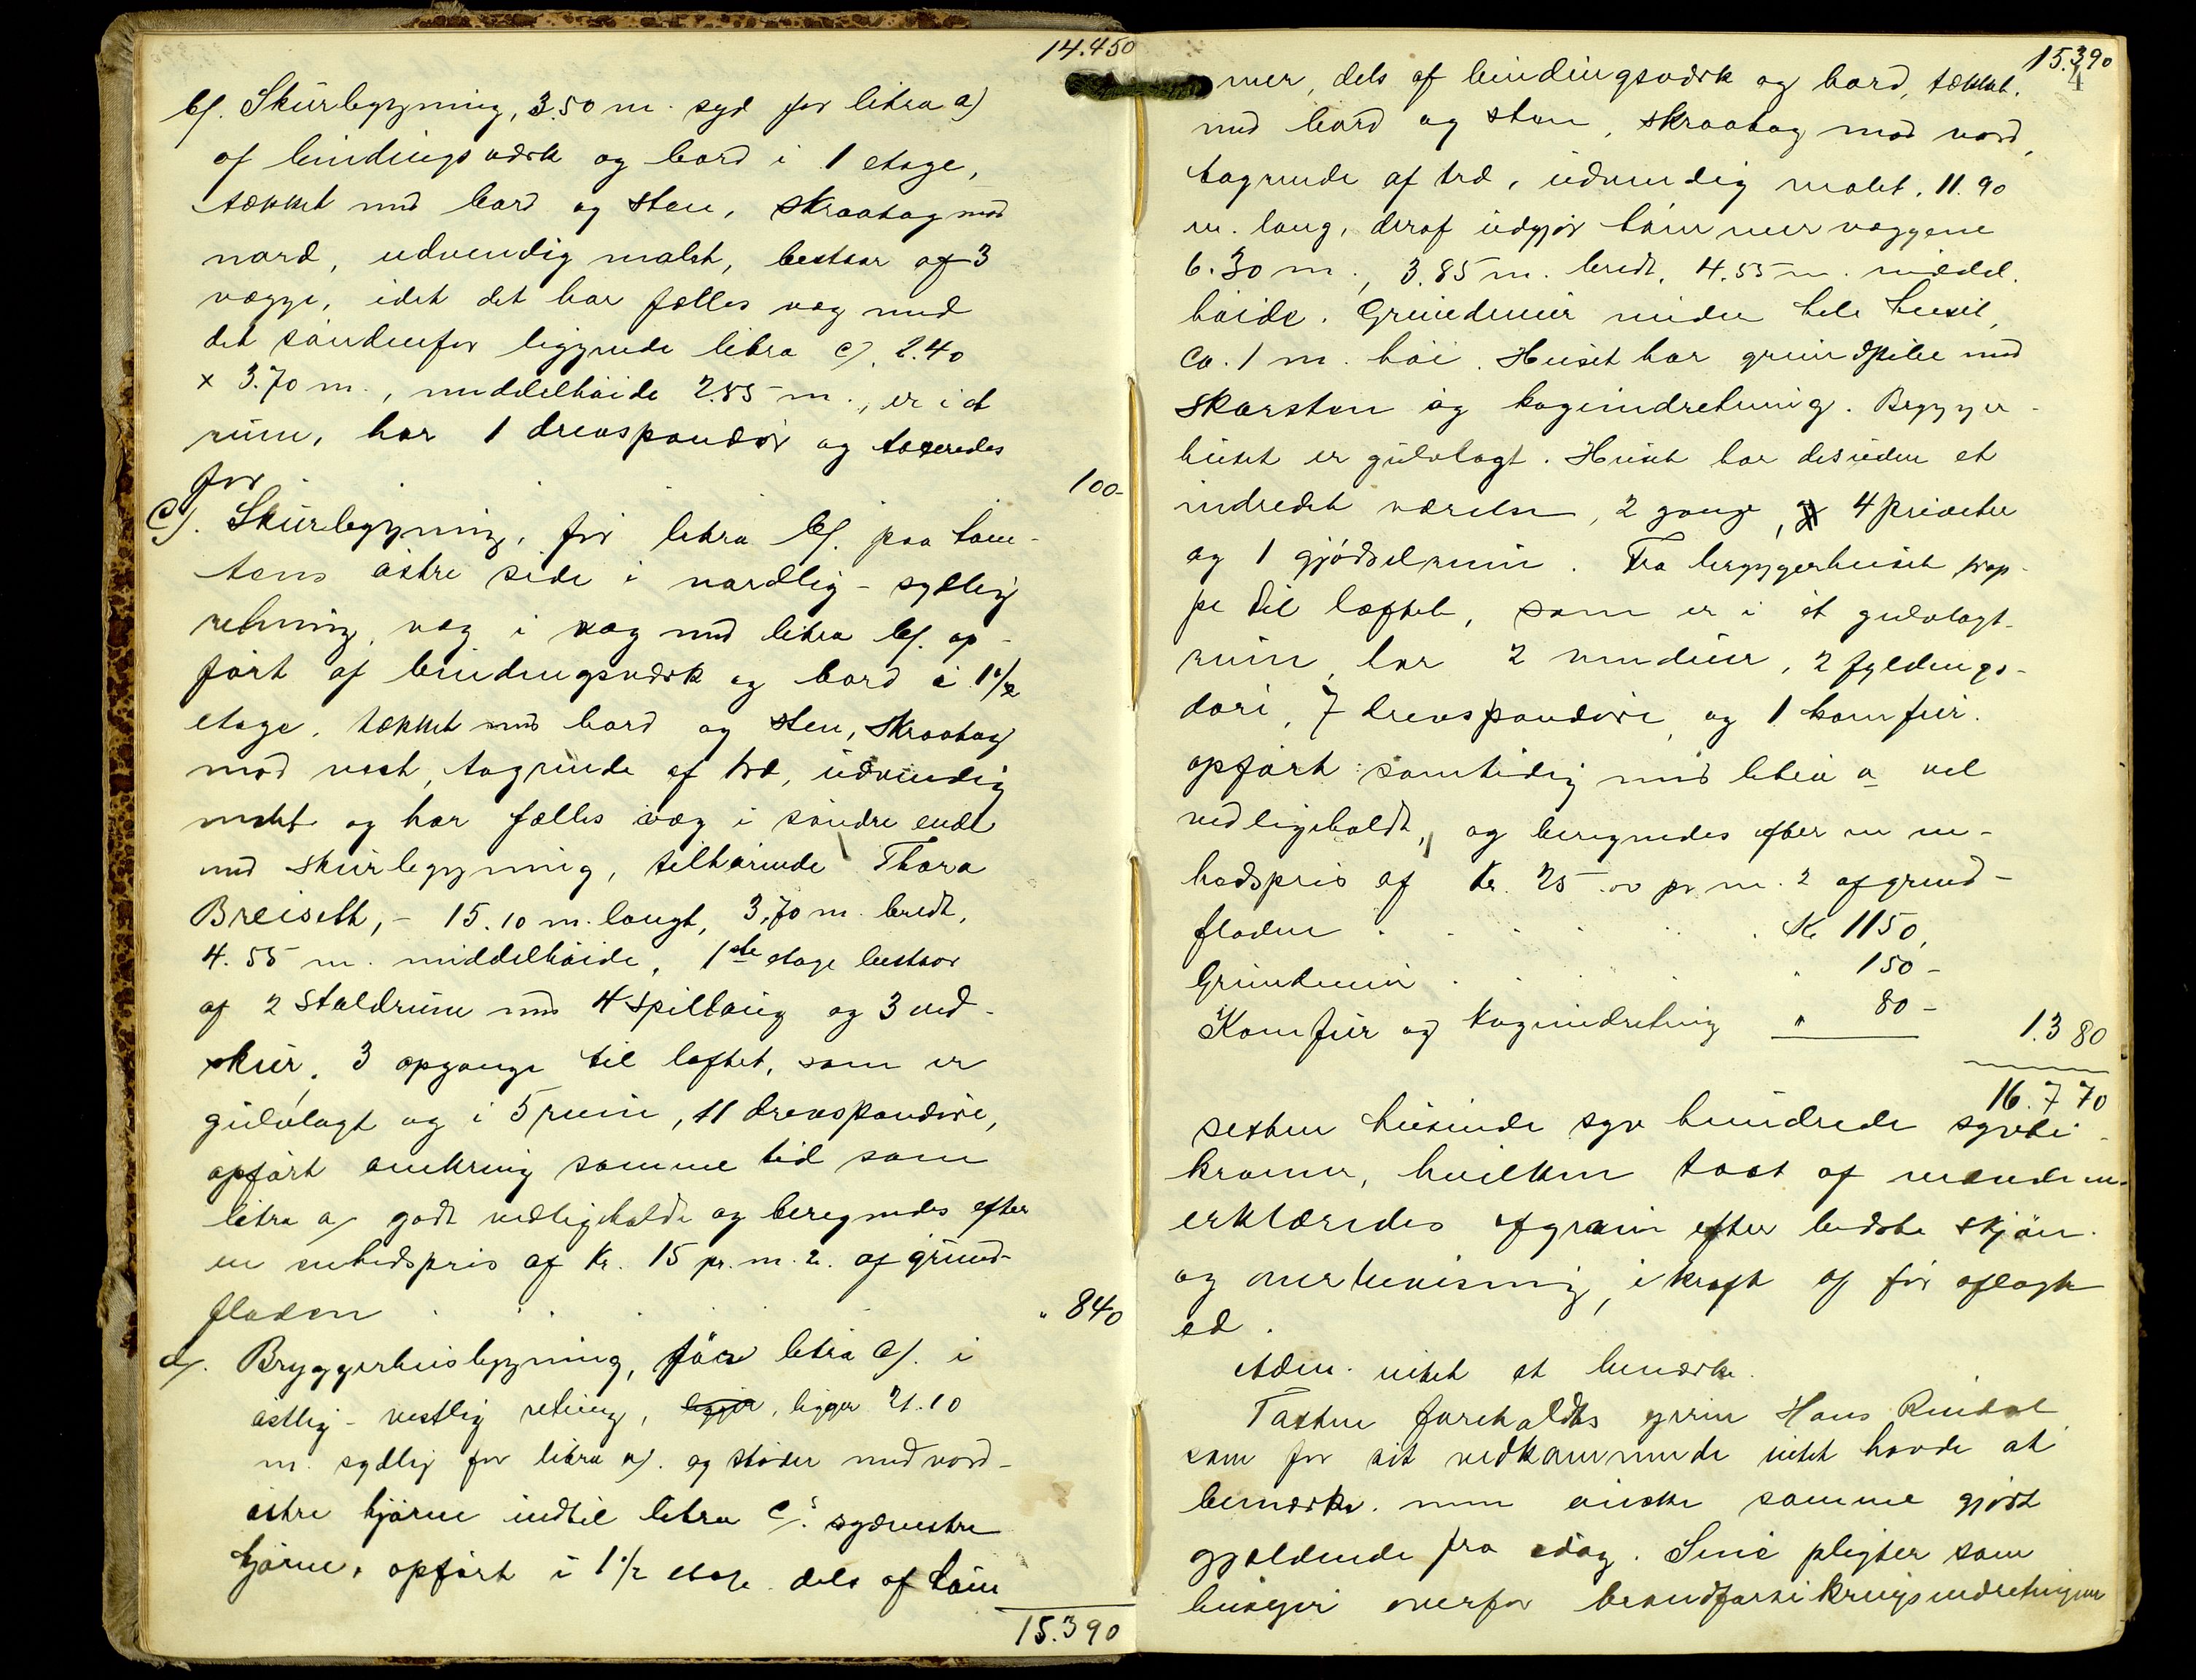 14.450
b/. Skurbygning, 3.50 m. syd for litra a)
af bindingsværk og bord i 1 etage,
tækket med bord og sten, skraatag mod
nord, udvendig malet, bestaar af 3
vægge, idet det har fælles væg med
det søndenfor liggende litra c), 2.40
x 3.70 m., middelhøide 2.85 m., er i et
rum, har 1 drevspandør og taxeredes
for 100-
c/. Skurbygning, for litra b/. paa tom-
tens østre side i nordlig-sydlig
retning, væg i væg med litra b/. op-
ført af bindingsværk og bord i 1 1/2
etage, tækket med bord og sten, skraatag
mod vest, tagrende af træ, udvendig
malet og har fælles væg i søndre ende
med skurbygning, tilhørende Thora
Breiseth, - 15.10 m. langt, 3,70 m. bredt,
4.55 m. middelhøide, 1ste etage bestaar
af 2 staldrum med 4 spiltaug og 3 ved-
skur, 3 opgange til loftet, som er
gulvlagt og i 5 rum, 11 drevspandøre,
opført omkring samme tid som
litra a/ godt vedligeholdt og beregnedes efter
en enhedspris af Kr. 15 pr. m. 2. af grund-
fladen . . . . . " 840
d/. Bryggerhusbygning, för litra a/. i
østlig-vestlig retning, ligger 21.10
m. sydlig for litra a/. og støder med nord-
østre hjørne indtil litra c/.s sydvestre
hjørne, opført i 1 1/2 etage dels af tøm
15.390
15.390
4
mer, dels af bindingsværk og bord, tækket.
med bord og sten, skraatag mod nord,
tagrende af træ, udvendig malet, 11.90
m. lang, deraf udgjør tømmervæggene
6.30 m., 3.85 m. bredt, 4.55 m. middel.
høide. Grundmur under hele huset,
ca. 1 m. høi. Huset har grundpibe med
skorsten og kogeindretning. Brygger-
huset er gulvlagt. Huset har desuden et
indredet værelse, 2 gange, 4 priveter
og 1 gjødselrum. Fra bryggerhuset trap-
pe til loftet, som er i et gulvlagt
rum, har 2 vinduer, 2 fyldings-
døre, 7 drevspandøre og 1 komfur.
opført samtidig med litra a vel
vedligeholdt, og beregnedes efter en en-
hedspris af Kr. 25.00 pr. m. 2 af grund-
fladen . . . . . Kr 1150,
Grundmur . . . . 150-
Komfur og kogeindretning " 80- 1.380
16.770
sexten tusinde syv hundrede sytti
kroner, hvilken taxt af mændene
erklæredes afgiven efter bedste skjøn
og overbevisning, i kraft af før aflagt
ed.
Adm. intet at bemærke.
Taxten foreholdtes eieren Hans Rindal
som for sit vedkommende intet havde at
bemærke. men ønsker samme gjort
gjældende fra idag. Sine pligter som
huseier overfor brandforsikringsindretningen